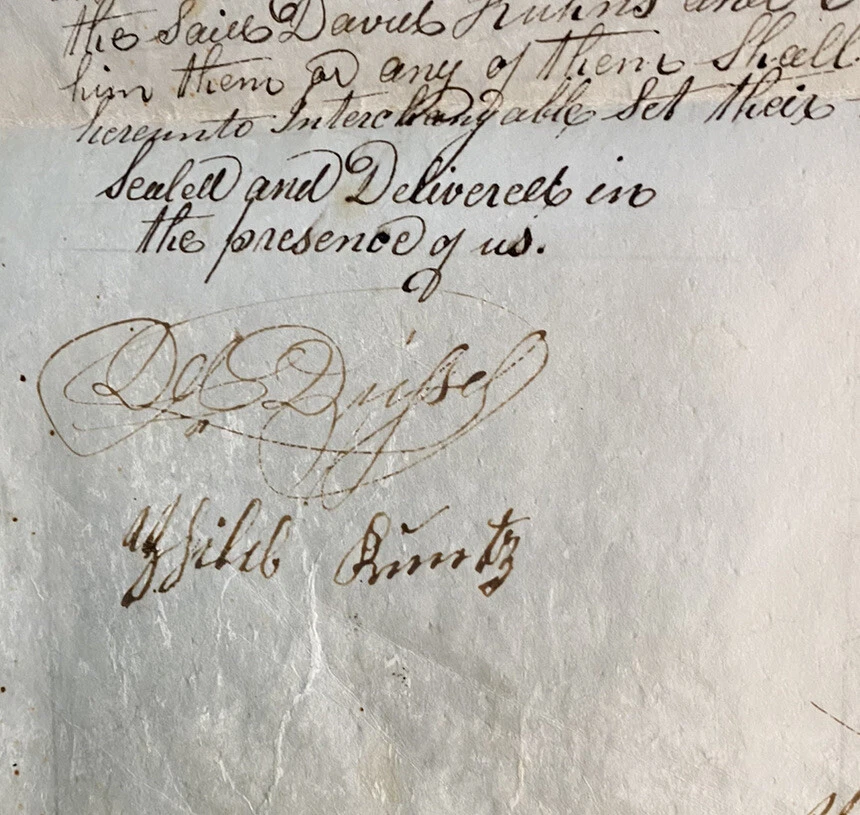 the Said David Kuhns and
him them or any of them Shall
hereunto Interchangable Set their
Sealed and Delivered in
the presence of us.
Kuntz